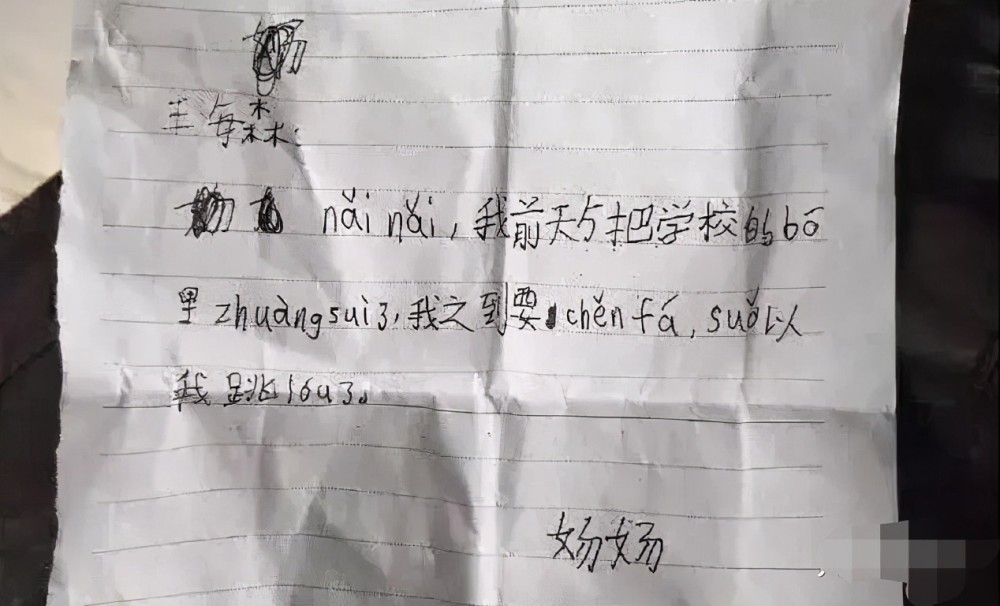 王 森:
nǎi nǎi, 我前天 把学校的bō
里zhuàng sui了, 我之到要chěn fá, suǒ以
我跳lóu了。